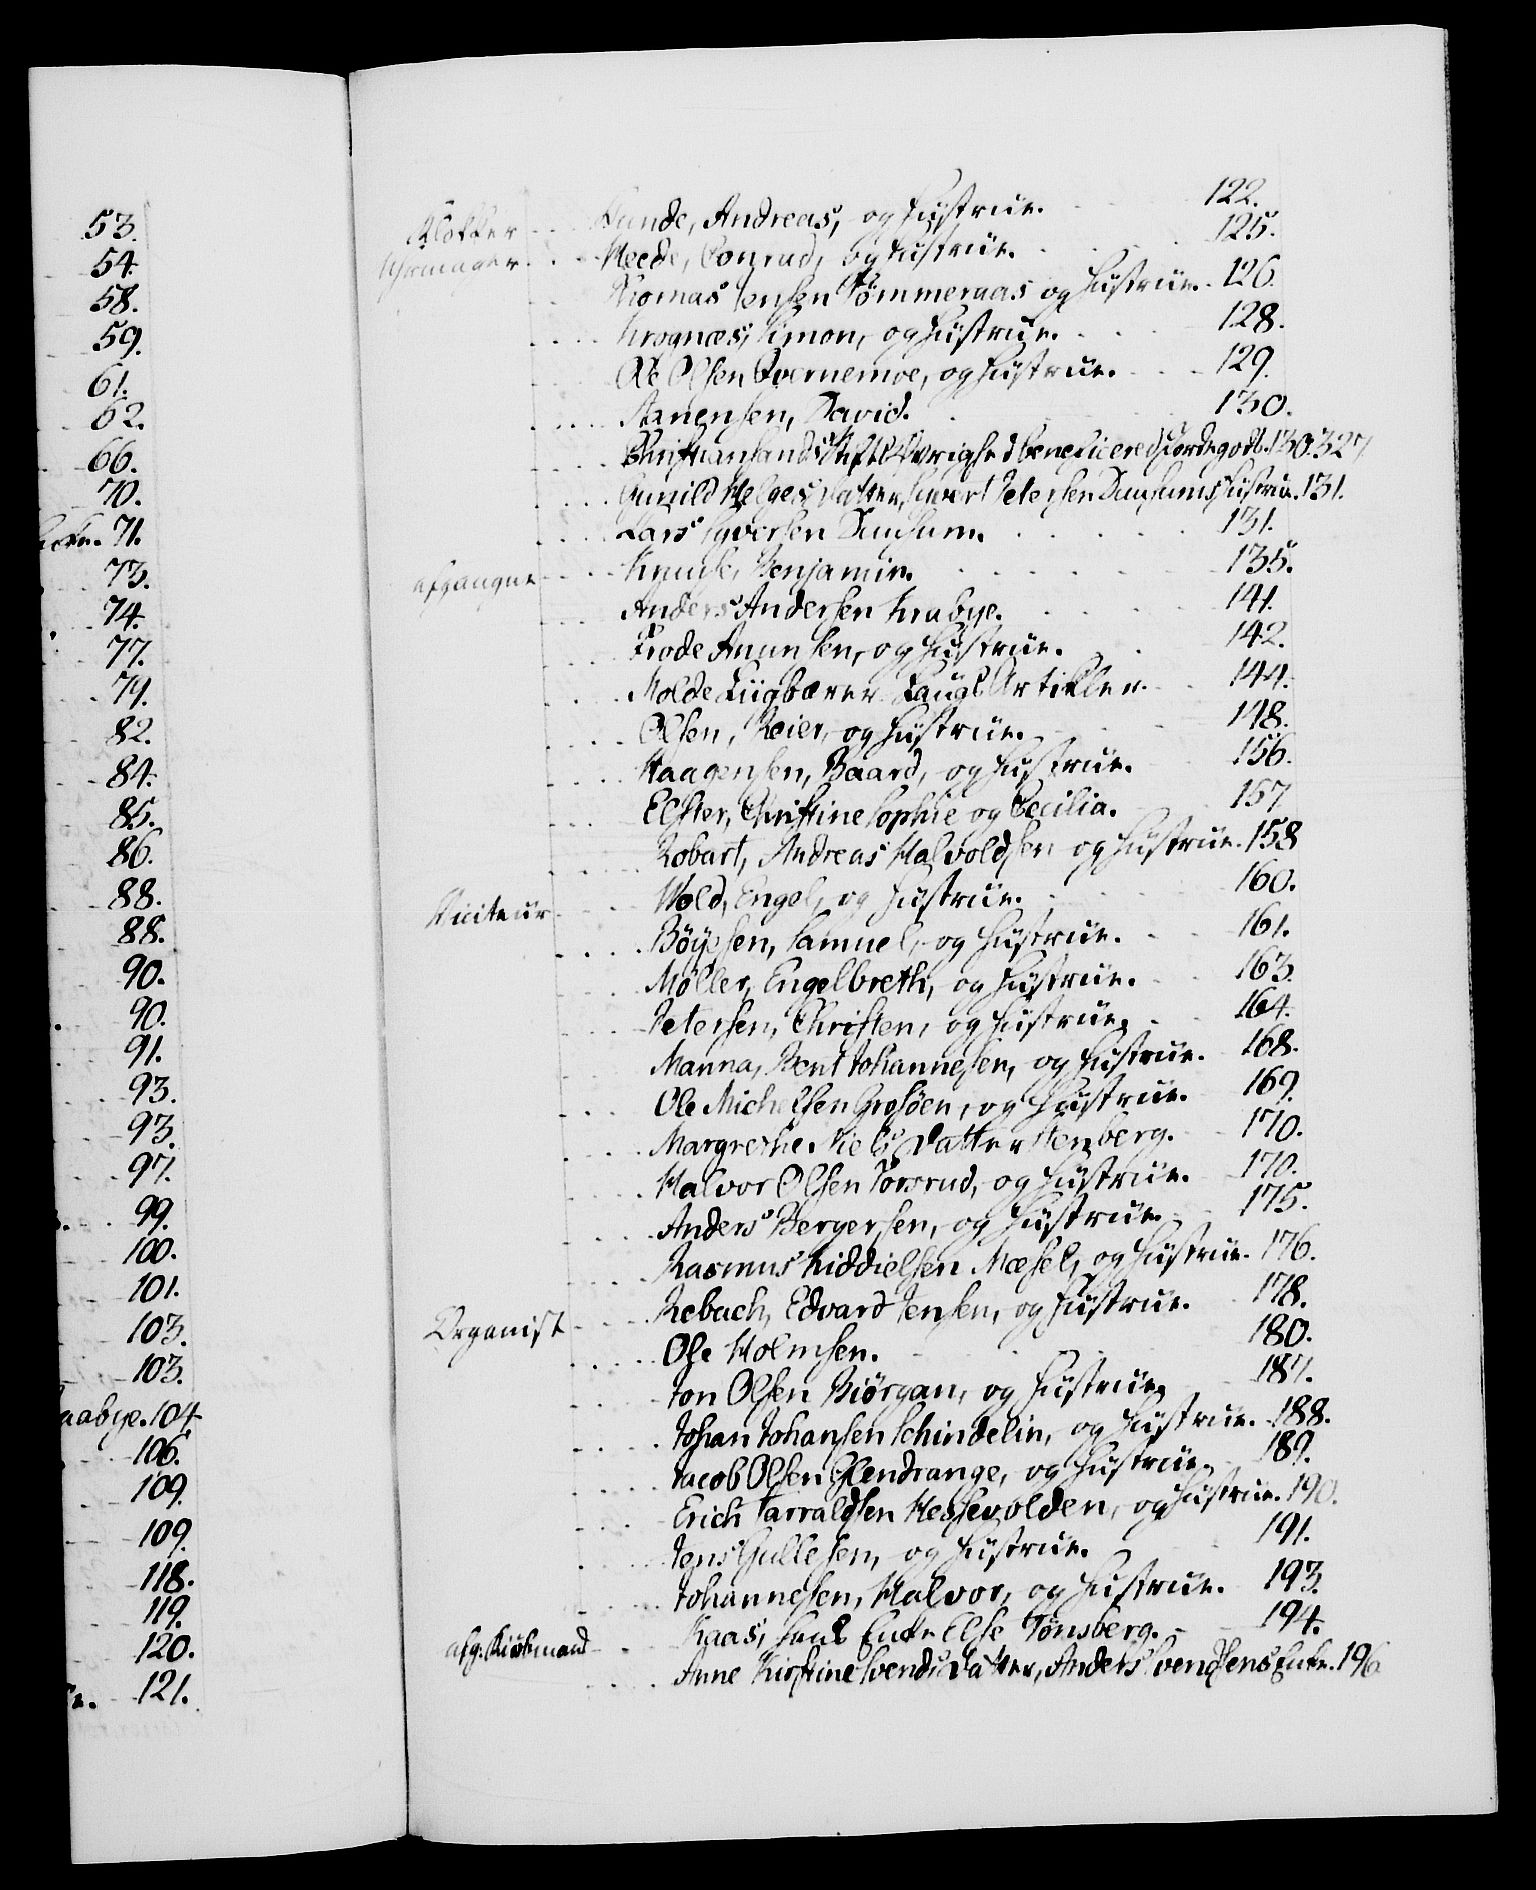 53.
54.
58.
59.
61.
62.
66.
70.
71.
73.
74.
77.
79.
82.
84.
85.
86.
88.
88.
90.
90.
91.
93.
93.
97.
99.
100.
101.
103.
103.
aabye. 104
106.
109.
109.
118.
119.
120.
121.
Klokker - - - Hunde, Andreas, og Hustrue. 122.
Uhrmager - - - Heede, Conrad, og Hustrue. 125.
Thomas Jensen Tømmeraas og Hustrue. 126.
Krognæs, Simon, og Hustrue. 128.
Ole Olsen Qvernemoe, og Hustrue. 129.
Aanensen, David. 130.
Christiansands Stifts Øvrighed beneficered Jordegods. 130. 327
Gunild Helges Datter, Sivert Petersen Dunsums Hustrue. 131.
Lars Syversen Dunsum. 131.
afgangne - - - Knudse, Benjamin. 135.
Anders Andersen Krabye. 141.
Frode Amunsen, og Hustrue. 142.
Molde Liigbærer Laugs Artikler. 144.
Olsen, Reier, og Hustrue. 148.
Haagensen, Baard, og Hustrue. 156.
Elster, Christine Sophie og Cecilia. 157
Robart, Andreas Halvoldsen og Hustrue. 158
Viciteur - - - Wold, Engel, og Hustrue. 160.
Böyesen, Samuel, og Hustrue. 161.
Möller, Engelbreth, og Hustrue. 163.
Petersen, Christen, og Hustrue. 164.
Manna, Bent Johannesen, og Hustrue. 168.
Ole Michelsen Grosöen, og Hustrue. 169.
Margrethe Niels Datter Stenberg. 170.
Halvor Olsen Torsrud, og Hustrue. 170.
Anders Bergersen, og Hustrue. 175.
Rasmus Kiddielsen Mæsel, og Hustrue. 176.
Organist - - - Rebach, Edvard Jensen, og Hustrue. 178.
Ole Holmsen. 180.
Jon Olsen Biörgan, og Hustrue. 187.
Johan Johansen Schindelin, og Hustrue. 188.
Jacob Olsen Glendrange, og Hustrue. 189.
Erich Tarraldsen Hessevolden, og Hustrue. 190.
Jens Gullesen, og Hustrue. 191.
Johannesen, Halvor, og Hustrue. 193.
afg. Kiöbmand - - - Kaas, Enke Else Tönsberg. 194.
Anne Kirstine Svends Datter, Anders Svendsens Enke. 196